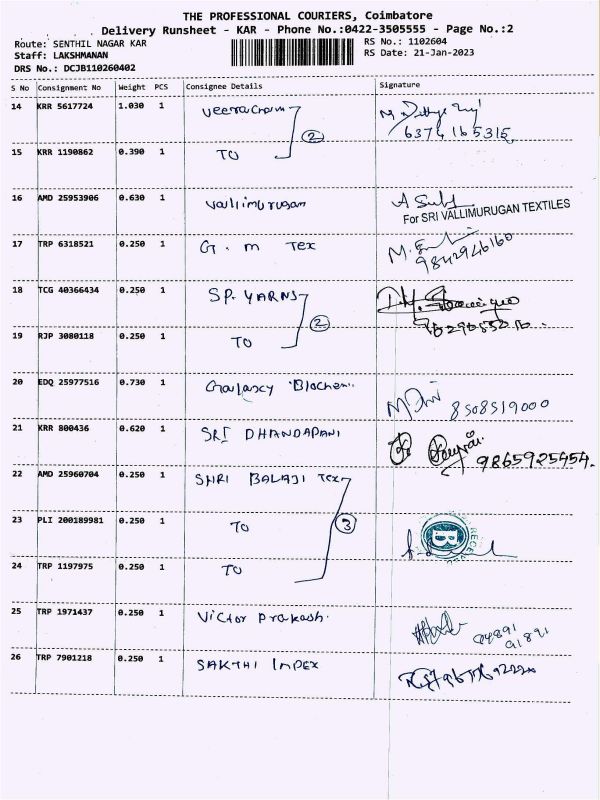 THE PROFESSIONAL COURIERS, Coimbatore
Delivery Runsheet - KAR - Phone No.:0422-3505555 - Page No.:2
Route: SENTHIL NAGAR KAR RS No.: 1102604
Staff: LAKSHMANAN RS Date: 21-Jan-2023
DRS No.: DCJB110260402
S No Consignment No Weight PCS Consignee Details Signature
14 KRR 5617724 1.030 1
6374165315
2
15 KRR 1190862 0.390 1 TO
16 AMD 25953906 0.630 1 Vallimurugan
For SRI VALLIMURUGAN TEXTILES
17 TRP 6318521 0.250 1 G. m Tex
9842946160
18 TCG 40366434 0.250 1 SP. YARNS
2
19 RJP 3080118 0.250 1 TO
20 EDQ 25977516 0.730 1 Galaxcy Biochem
8508519000
21 KRR 800436 0.620 1 SRI DHANDAPANI
9865925454.
22 AMD 25960704 0.250 1 SHRI BALAJI Tex
23 PLI 200189981 0.250 1 TO 3
24 TRP 1197975 0.250 1 TO
25 TRP 1971437 0.250 1 Victor Prakash.
94891
91891
26 TRP 7901218 0.250 1 SAKTHI IMPEX